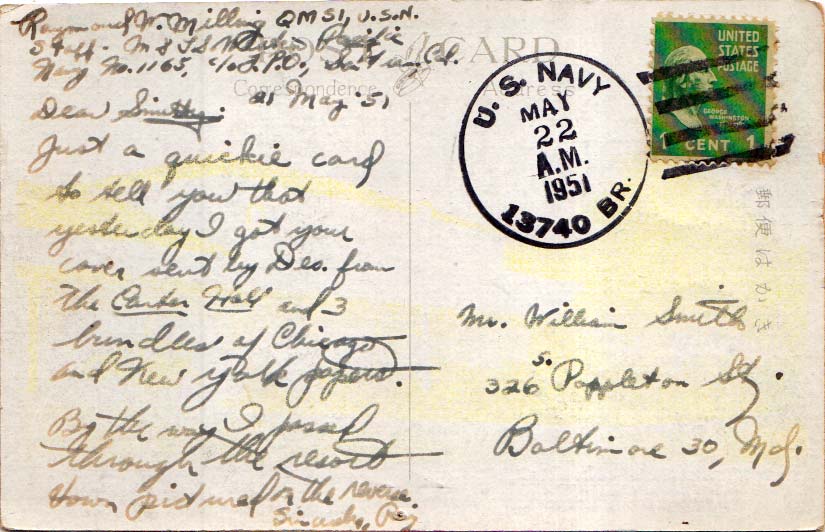 Raymond W. Milling QMS1, U.S.N.
Staff
Navy No. 1165, c/o F.P.O., San Fran, Cal.
CARD
Correspondence
Address
21 May '51
Dear Smitty:
Just a quickie card
to tell you that
yesterday I got your
cover sent by Des. from
the Carter Hall and 3
bundles of Chicago
and New York papers.
By the way I passed
through the resort
town pictured on the reverse
Sincerely, Ray
U.S. NAVY
MAY
22
A.M.
1951
13740 BR.
UNITED
STATES
POSTAGE
GEORGE
WASHINGTON
1 CENT 1
郵便はかき
Mr. William Smith
326 S. Poppleton St.
Baltimore 30, Md.